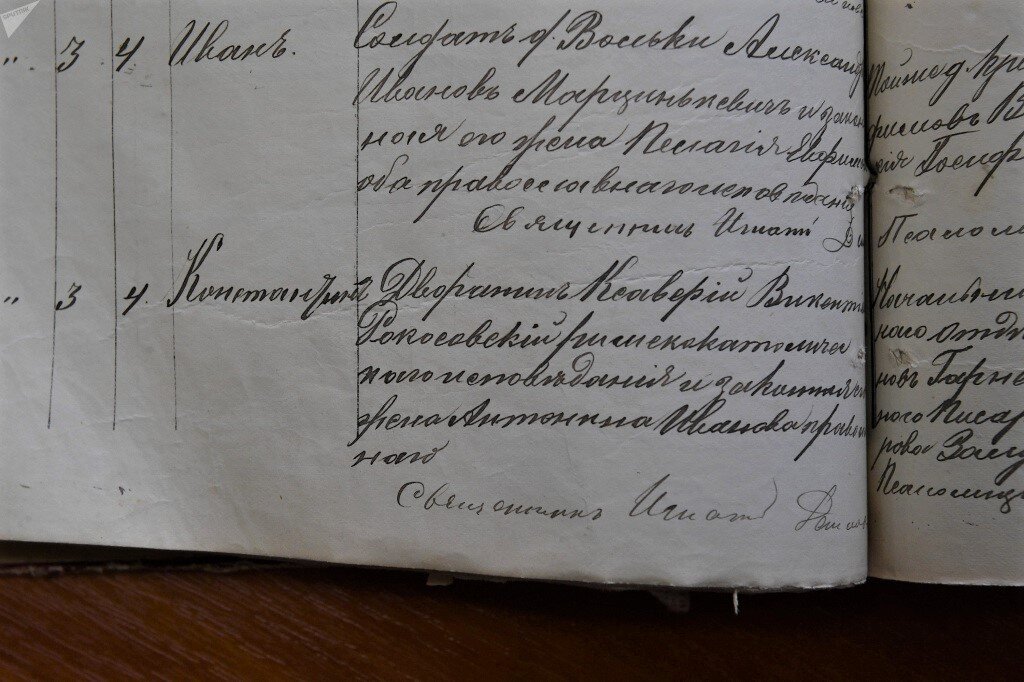 SPUTNIK
". 3 4. Иванъ. Солдатъ д. Вольки Александ
Ивановъ Марцинькевичъ и закон
ная его жена Пелагія Ефрим
оба православнаго исповѣданія
Священникъ Игнатій
" 3 4. Константинъ Дворянинъ Ксаверій Викент
Рокосовскій римскокатоличес
каго исповѣданія и законная
жена Антонина Иванова правос
наго
Священникъ Игнатій
Тойже д.
фимовъ
сія Іосиф
Псалом
Начальни
наго отдѣ
новъ Гарне
наго Писар
рова
Псаломщ